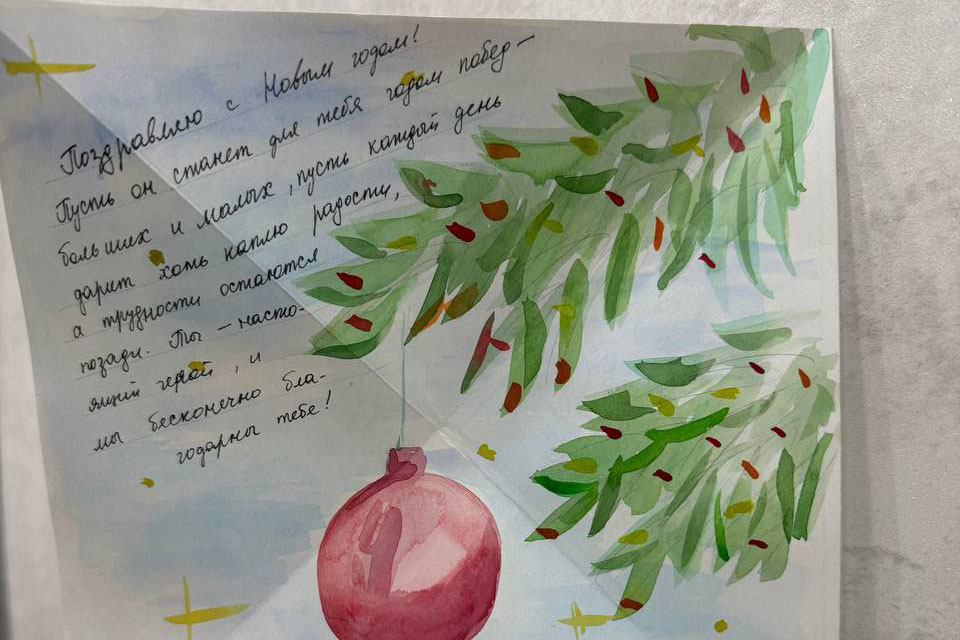 Поздравляю с Новым годом!
Пусть он станет для тебя годом побед -
больших и малых, пусть каждый день
дарит хоть каплю радости,
а трудности остаются
позади. Ты - насто-
ящий герой, и
мы бесконечно бла-
годарны тебе!